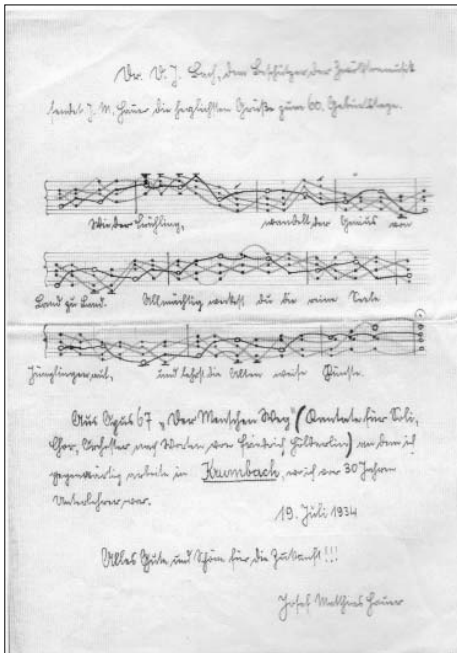 Dr. D. J. Bach, dem Beschützer der Zwölftonmusik
sendet J. M. Hauer die herzlichsten Grüße zum 60. Geburtstage.
Wie der Frühling, wandelt der Genius von
Land zu Land. Allmächtig weckst du die reine Seele
Jünglingen auf, und lehrst die Alten weise Künste.
Aus Opus 67 „Der Menschen Weg" (Kantate für Soli,
Chor, Orchester nach Worten von Friedrich Hölderlin) an dem ich
gegenwärtig arbeite in Krumbach, wo ich vor 30 Jahren
Unterlehrer war.
19. Juli 1934
Alles Gute und Schöne für die Zukunft!!!
Josef Matthias Hauer